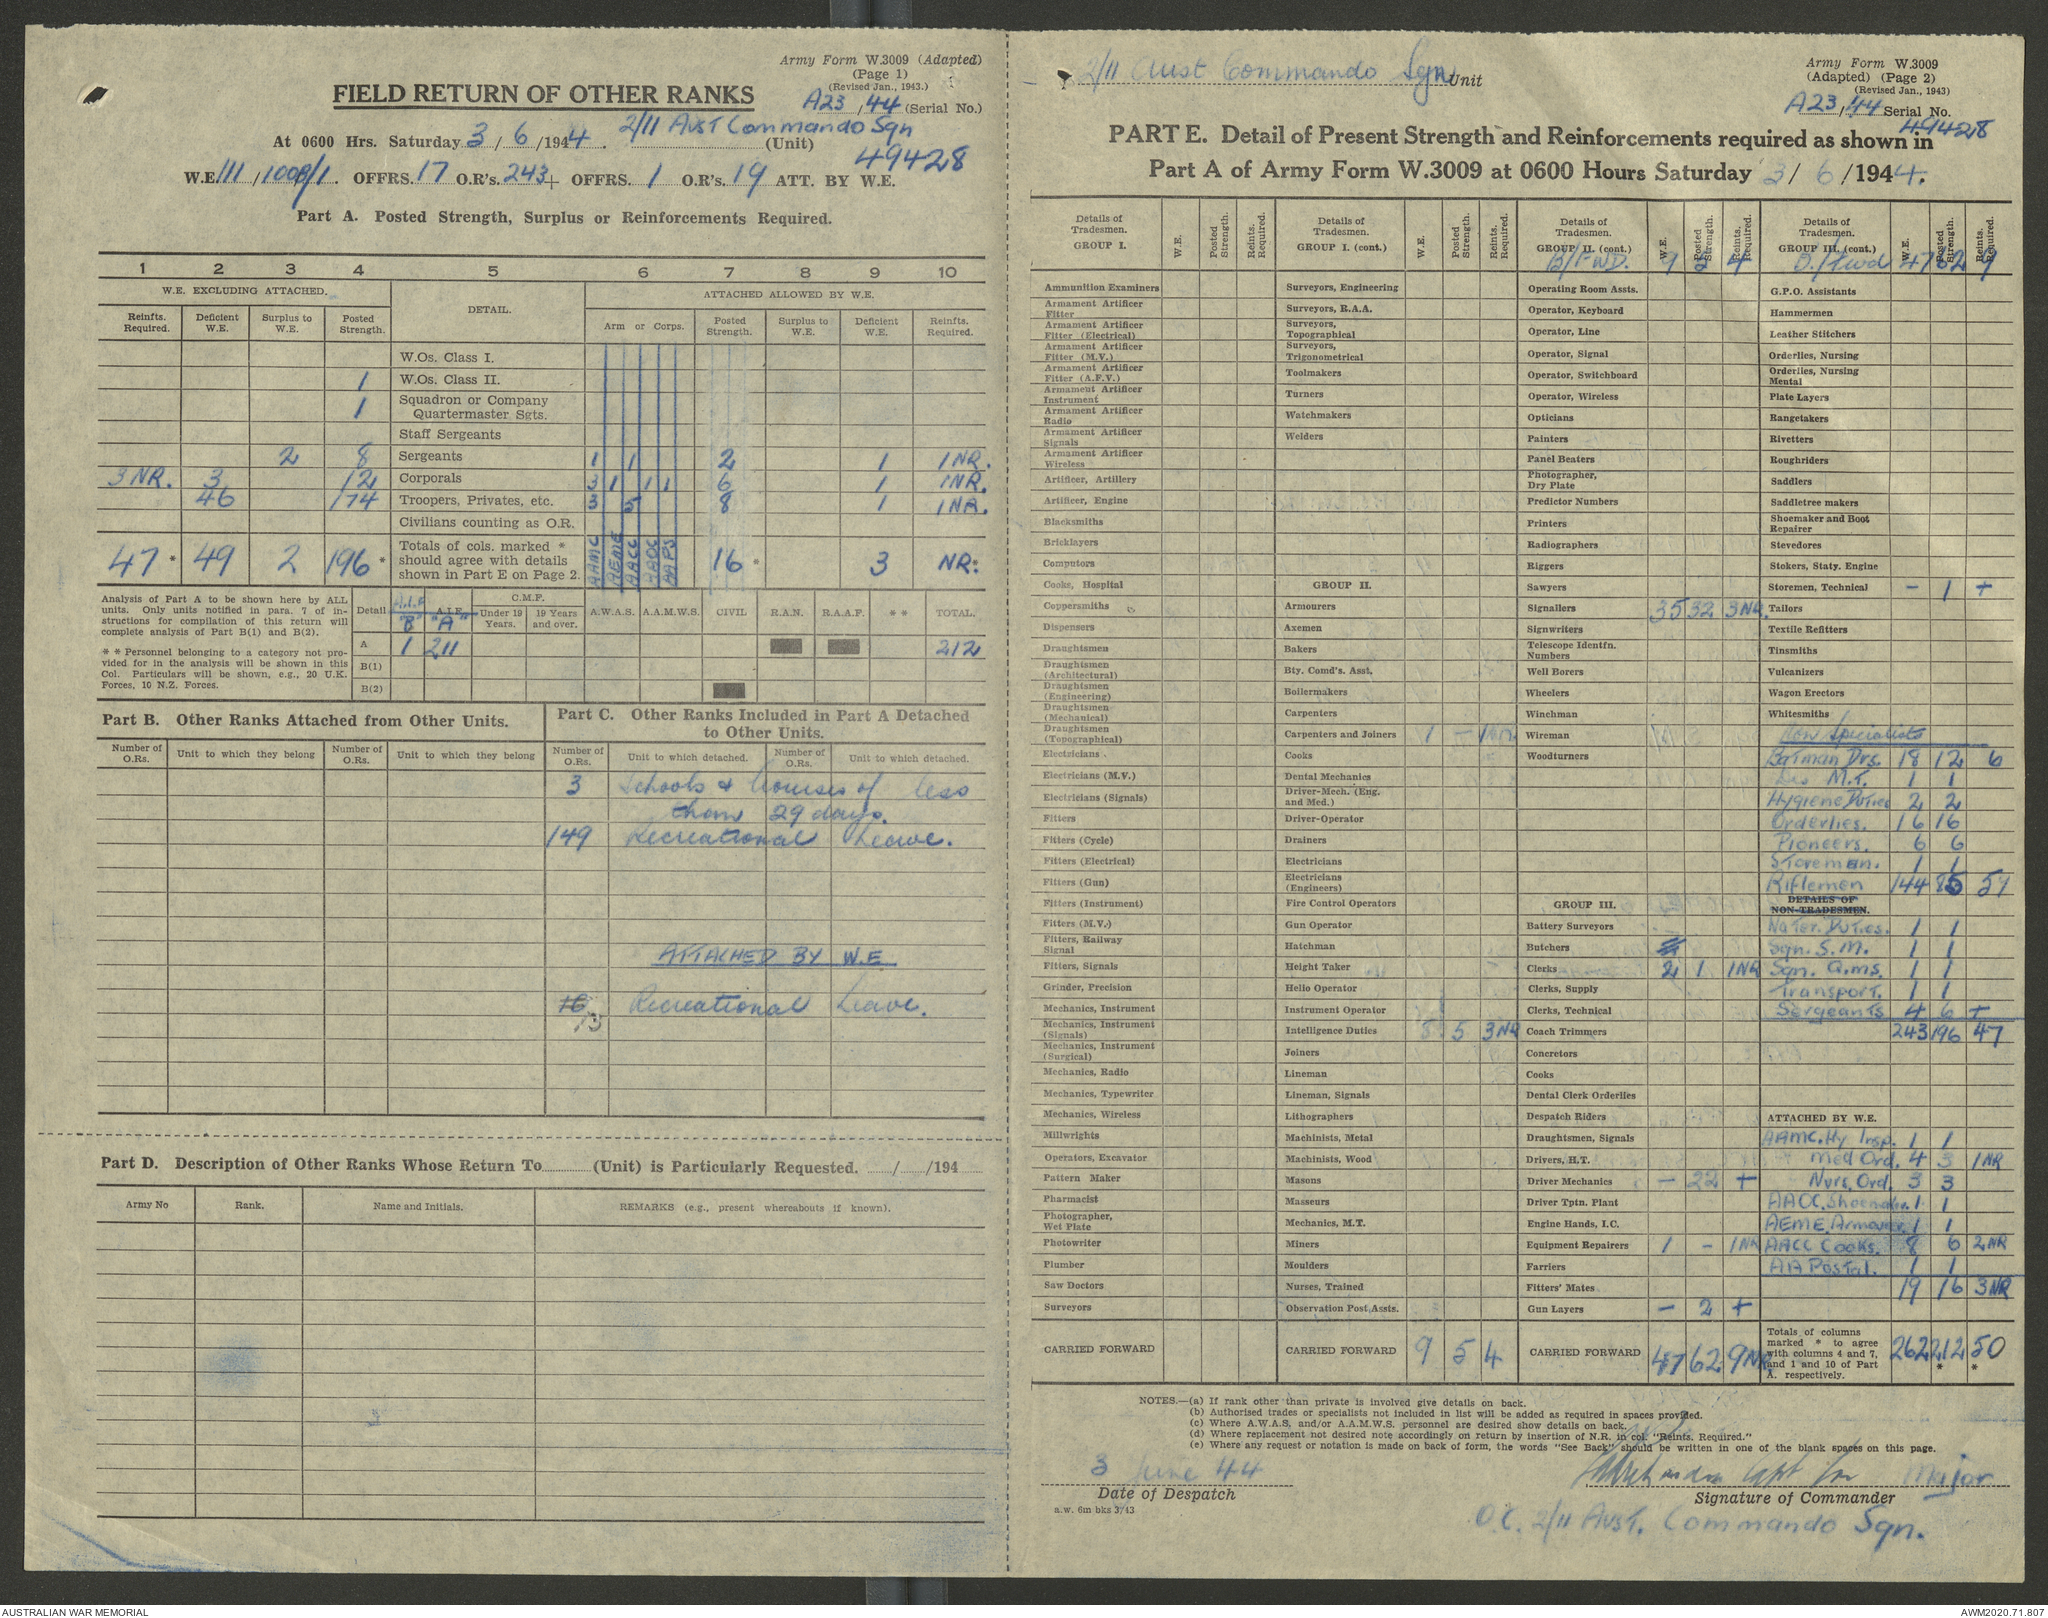 Army Form W.3009 (Adapted)
(Page 1)
(Revised Jan., 1943.)
FIELD RETURN OF OTHER RANKS
A23/44 (Serial No.)
At 0600 Hrs. Saturday 3/6/1944. 2/11 AUST Commando Sqn (Unit)
49428
W.E. 111/1009/1. OFFRS. 17 O.R's. 243 + OFFRS. 1 O.R's. 19 ATT. BY W.E.
Part A. Posted Strength, Surplus or Reinforcements Required.
1 2 3 4 5 6 7 8 9 10
W.E. EXCLUDING ATTACHED. DETAIL. ATTACHED ALLOWED BY W.E.
Reinfts. Required. Deficient W.E. Surplus to W.E. Posted Strength. Arm or Corps. Posted Strength. Surplus to W.E. Deficient W.E. Reinfts. Required.
W.Os. Class I.
1 W.Os. Class II.
1 Squadron or Company Quartermaster Sgts.
Staff Sergeants
2 8 Sergeants 1 1 2 1 1 NR.
3 NR. 3 12 Corporals 3 1 1 1 6 1 1NR.
46 174 Troopers, Privates, etc. 3 5 8 1 1NR.
Civilians counting as O.R.
47 * 49 2 196 * Totals of cols. marked * should agree with details shown in Part E on Page 2. AAMC AEME AACC AAOC AAPS 16 * 3 NR. *
Analysis of Part A to be shown here by ALL units. Only units notified in para. 7 of instructions for compilation of this return will complete analysis of Part B(1) and B(2).
* * Personnel belonging to a category not provided for in the analysis will be shown in this Col. Particulars will be shown, e.g., 20 U.K. Forces, 10 N.Z. Forces.
Detail A.I.F "B" A.I.F. "A" C.M.F. Under 19 Years. 19 Years and over. A.W.A.S. A.A.M.W.S. CIVIL R.A.N. R.A.A.F. * * TOTAL.
A 1 211 212
B(1)
B(2)
Part B. Other Ranks Attached from Other Units.
Number of O.Rs. Unit to which they belong Number of O.Rs. Unit to which they belong
Part C. Other Ranks Included in Part A Detached to Other Units.
Number of O.Rs. Unit to which detached. Number of O.Rs. Unit to which detached.
3 Schools & Courses of less
than 29 days.
149 Recreational Leave.
ATTACHED BY W.E
16 13 Recreational Leave.
Part D. Description of Other Ranks Whose Return To (Unit) is Particularly Requested. / /194
Army No Rank. Name and Initials. REMARKS (e.g., present whereabouts if known).
2/11 Aust Commando Sqn Unit
Army Form W.3009
(Adapted) (Page 2)
(Revised Jan., 1943)
A23/44 Serial No.
49428
PART E. Detail of Present Strength and Reinforcements required as shown in
Part A of Army Form W.3009 at 0600 Hours Saturday 3/6/1944.
Details of Tradesmen. GROUP I. W.E. Posted Strength. Reints. Required.
Ammunition Examiners
Armament Artificer Fitter
Armament Artificer Fitter (Electrical)
Armament Artificer Fitter (M.V.)
Armament Artificer Fitter (A.F.V.)
Armament Artificer Instrument
Armament Artificer Radio
Armament Artificer Signals
Armament Artificer Wireless
Artificer, Artillery
Artificer, Engine
Blacksmiths
Bricklayers
Computors
Cooks, Hospital
Coppersmiths
Dispensers
Draughtsmen
Draughtsmen (Architectural)
Draughtsmen (Engineering)
Draughtsmen (Mechanical)
Draughtsmen (Topographical)
Electricians
Electricians (M.V.)
Electricians (Signals)
Fitters
Fitters (Cycle)
Fitters (Electrical)
Fitters (Gun)
Fitters (Instrument)
Fitters (M.V.)
Fitters, Railway Signal
Fitters, Signals
Grinder, Precision
Mechanics, Instrument
Mechanics, Instrument (Signals)
Mechanics, Instrument (Surgical)
Mechanics, Radio
Mechanics, Typewriter
Mechanics, Wireless
Millwrights
Operators, Excavator
Pattern Maker
Pharmacist
Photographer, Wet Plate
Photowriter
Plumber
Saw Doctors
Surveyors
CARRIED FORWARD
Details of Tradesmen. GROUP I. (cont.) W.E. Posted Strength. Reints. Required.
Surveyors, Engineering
Surveyors, R.A.A.
Surveyors, Topographical
Surveyors, Trigonometrical
Toolmakers
Turners
Watchmakers
Welders
GROUP II.
Armourers
Axemen
Bakers
Bty. Comd's. Asst.
Boilermakers
Carpenters
Carpenters and Joiners 1 - 1NR.
Cooks
Dental Mechanics
Driver-Mech. (Eng. and Med.)
Driver-Operator
Drainers
Electricians
Electricians (Engineers)
Fire Control Operators
Gun Operator
Hatchman
Height Taker
Helio Operator
Instrument Operator
Intelligence Duties 8 5 3NR
Joiners
Lineman
Lineman, Signals
Lithographers
Machinists, Metal
Machinists, Wood
Masons
Masseurs
Mechanics, M.T.
Miners
Moulders
Nurses, Trained
Observation Post Assts.
CARRIED FORWARD 9 5 4
Details of Tradesmen. GROUP II. (cont.) W.E. Posted Strength. Reints. Required.
B/FWD. 9 5 4
Operating Room Assts.
Operator, Keyboard
Operator, Line
Operator, Signal
Operator, Switchboard
Operator, Wireless
Opticians
Painters
Panel Beaters
Photographer, Dry Plate
Predictor Numbers
Printers
Radiographers
Riggers
Sawyers
Signallers 35 32 3NR.
Signwriters
Telescope Identfn. Numbers
Well Borers
Wheelers
Winchman
Wireman
Woodturners
GROUP III.
Battery Surveyors
Butchers
Clerks 2 1 1NR
Clerks, Supply
Clerks, Technical
Coach Trimmers
Concretors
Cooks
Dental Clerk Orderlies
Despatch Riders
Draughtsmen, Signals
Drivers, H.T.
Driver Mechanics - 22 +
Driver Tptn. Plant
Engine Hands, I.C.
Equipment Repairers 1 - 1NR
Farriers
Fitters' Mates
Gun Layers - 2 +
CARRIED FORWARD 47 62 9NR
Details of Tradesmen. GROUP III. (cont.) W.E. Posted Strength. Reints. Required.
B/fwd 47 62 9
G.P.O. Assistants
Hammermen
Leather Stitchers
Orderlies, Nursing
Orderlies, Nursing Mental
Plate Layers
Rangetakers
Rivetters
Roughriders
Saddlers
Saddletree makers
Shoemaker and Boot Repairer
Stevedores
Stokers, Staty. Engine
Storemen, Technical - 1 +
Tailors
Textile Refitters
Tinsmiths
Vulcanizers
Wagon Erectors
Whitesmiths
Non Specialists
Batman Drs. 18 12 6
M.T. 1 1
Hygiene Duties 2 2
Orderlies. 16 16
Pioneers. 6 6
Storeman. 1 1
Riflemen 144 85 59
DETAILS OF NON-TRADESMEN.
Water Duties. 1 1
Sqn. S.M. 1 1
Sqn. Q.ms. 1 1
Transport. 1 1
Sergeants 4 6 +
243 196 47
ATTACHED BY W.E.
AAMC. Hy Insp. 1 1
Med Ord. 4 3 1NR
Nurs. Ord. 3 3
AAOC. Shoemaker. 1 1
AEME. Armourer. 1 1
AACC Cooks. 8 6 2NR
AA Postal. 1 1
19 16 3NR
Totals of columns marked * to agree with columns 4 and 7, and 1 and 10 of Part A. respectively. 262 212 * 50 *
NOTES.—(a) If rank other than private is involved give details on back.
(b) Authorised trades or specialists not included in list will be added as required in spaces provided.
(c) Where A.W.A.S. and/or A.A.M.W.S. personnel are desired show details on back.
(d) Where replacement not desired note accordingly on return by insertion of N.R. in col. "Reints. Required."
(e) Where any request or notation is made on back of form, the words "See Back" should be written in one of the blank spaces on this page.
3 June 44
Date of Despatch
a.w. 6m bks 3/43
Capt for Major
Signature of Commander
O.C. 2/11 AUST. Commando Sqn.
AUSTRALIAN WAR MEMORIAL
AWM2020.71.807